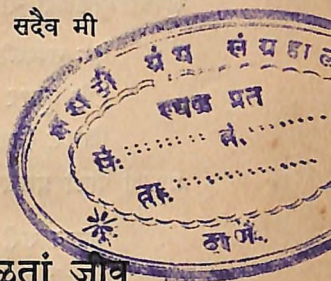 सदैव मी
मराठी ग्रंथ संग्रहाल
स्थळ प्रत
सं: ......... नं. .........
ता: .........
ठाणें.
ळतां जीव